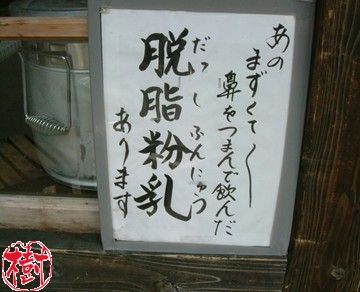 あの
まずくて〜
鼻をつまんで飲んだ
だっしふんにゅう
脱脂粉乳
あります
樹